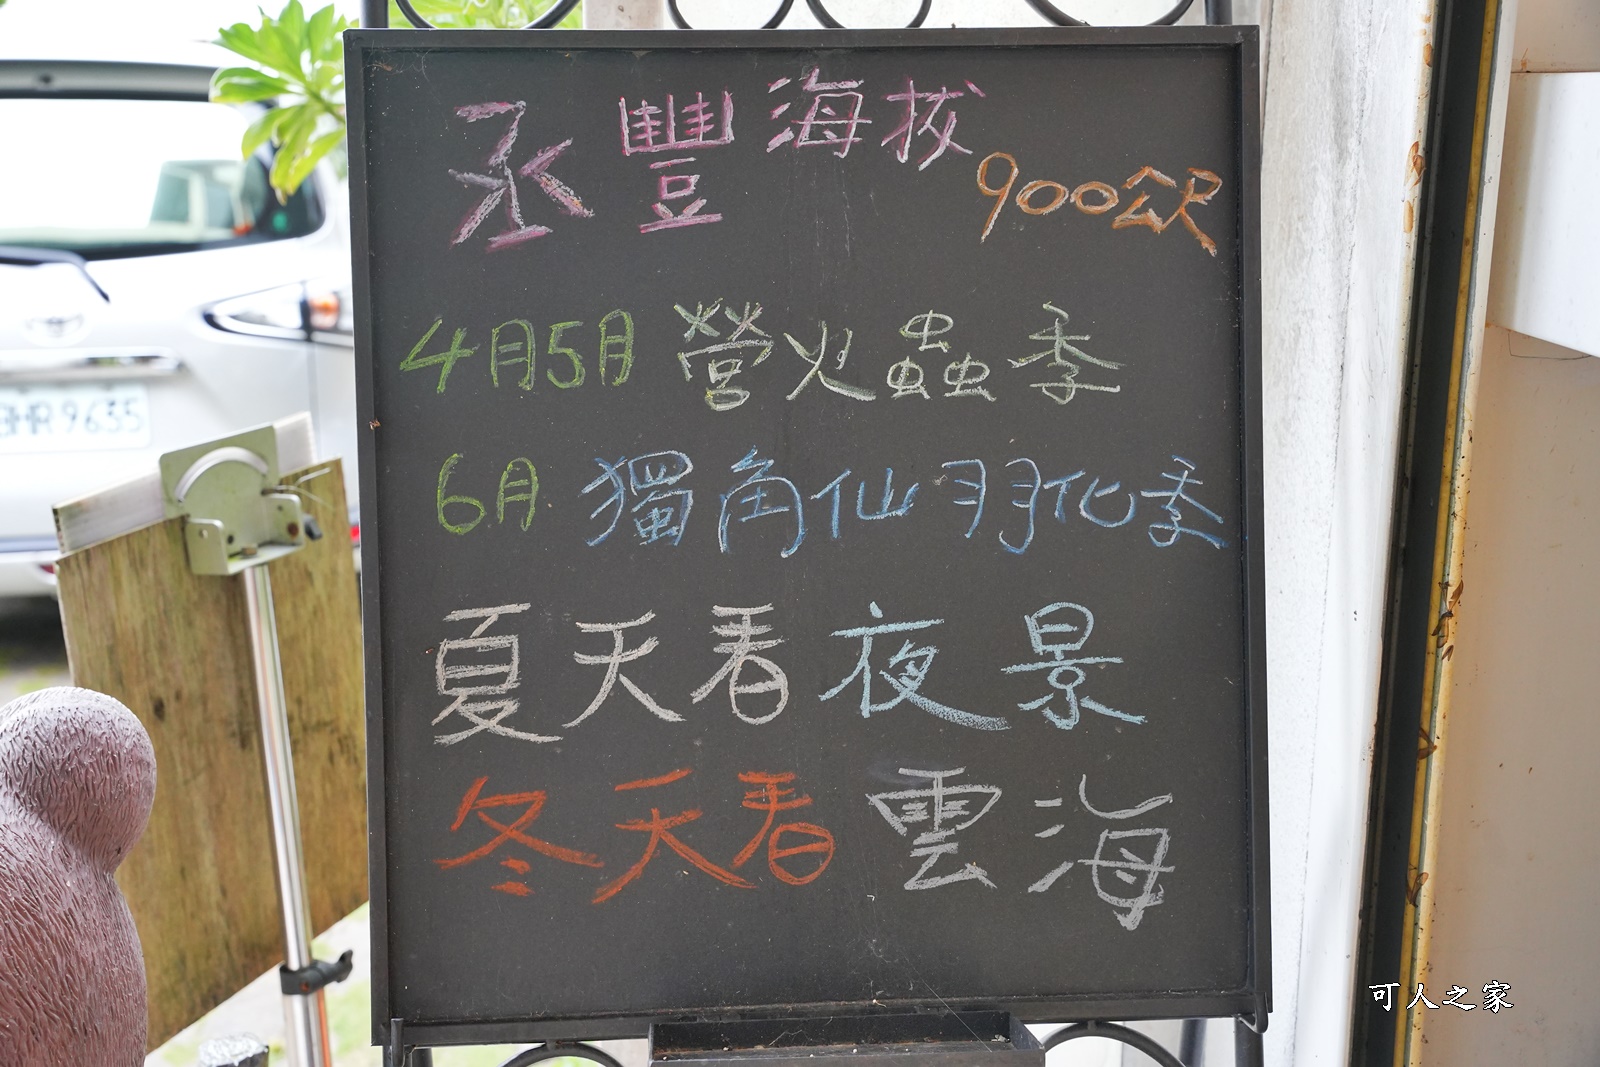 丞豐海拔900公尺
4月5月 螢火蟲季
6月 獨角仙羽化季
夏天看夜景
冬天看雲海
BMR 9635
可人之家